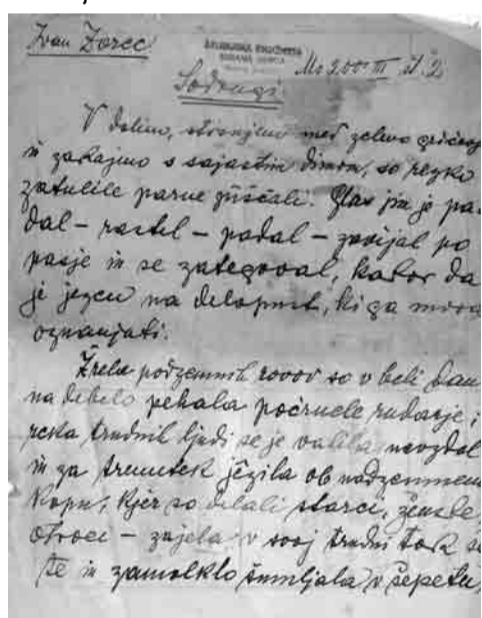 Ivan Zorec
Ms 200 III št. 2
Sodrugi.
V dolino, stisnjeno med zeleno gričevj
in zakajeno s sajastim dimom, so rezko
zatulile parne piščali. Glas jim je pa-
dal – rastel – padal – zavijal po
pasje in se zategoval, kakor da
je jezen na delopust, ki ga mora
oznanjati.
Žrela podzemnih rovov so v beli dan
na debelo pehala počrnele rudarje i
reka trudnih ljudi se je valila navzdol
in za trenutek jezila ob nadzemnem
kopu, kjer so delali starci, ženske,
otroci – zajela v svoj trudni tok še
te in zamolklo šumljala v šepetu,